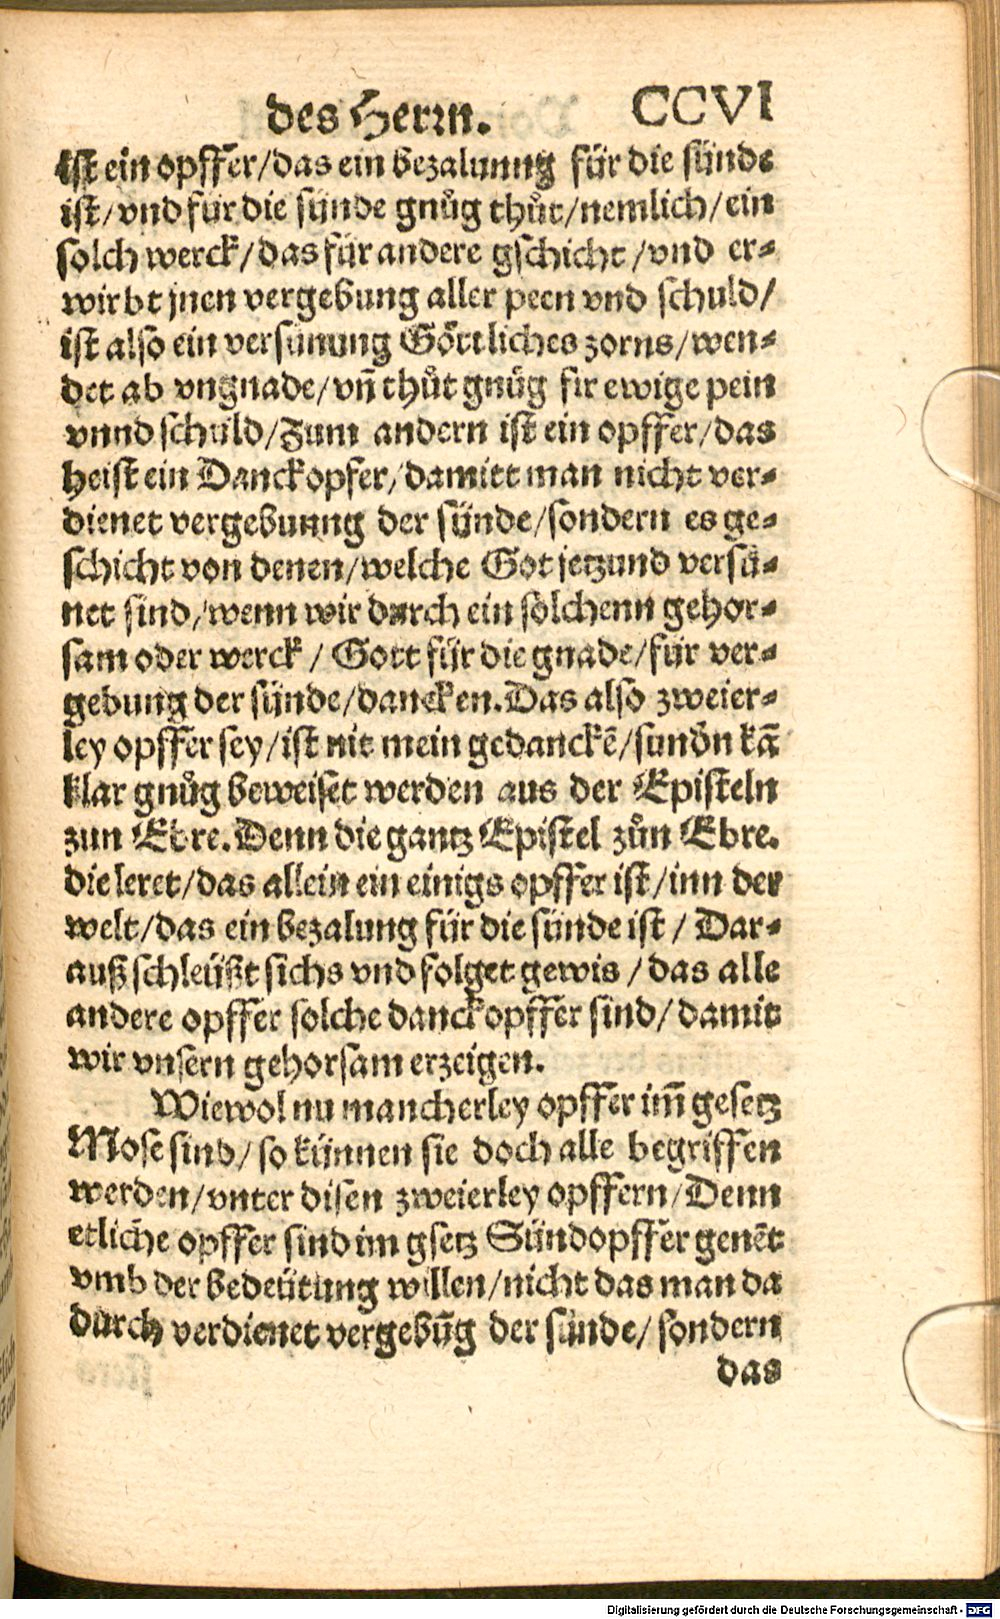 des Herrn. CCVI
ist ein opffer/das ein bezalunng für die sünde
ist/vnd für die sünde gnůg thůt/nemlich/ein
solch werck/das für andere gschicht/vnd er-
wirbt jnen vergebung aller peen vnd schuld/
ist also ein versünung Göttliches zorns/wen-
det ab vngnade/vñ thůt gnůg fir ewige pein
vnnd schuld/Zum andern ist ein opffer/das
heist ein Danckopfer/damitt man nicht ver-
dienet vergebunng der sünde/sondern es ge-
schicht von denen/welche Got jetzund versü-
net sind/wenn wir durch ein solchenn gehor-
sam oder werck/Gott für die gnade/für ver-
gebung der sünde/dancken.Das also zweier-
ley opffer sey/ist nit mein gedanckẽ/sundn kã
klar gnůg beweiset werden aus der Episteln
zun Ebre.Denn die gantz Epistel zůn Ebre.
die leret/das allein ein einigs opffer ist/inn der
welt/das ein bezalung für die sünde ist/Dar-
auß schleüßt sichs vnd folget gewis/das alle
andere opffer solche danckopffer sind/damit
wir vnsern gehorsam erzeigen.
Wiewol nu mancherley opffer im̃ gesetz
Mose sind/so künnen sie doch alle begriffen
werden/vnter disen zweierley opffern/Denn
etliche opffer sind im gsetz Sündopffer genẽt
vmb der bedeütung willen/nicht das man da
durch verdienet vergebũg der sünde/sondern
das
Digitalisierung gefördert durch die Deutsche Forschungsgemeinschaft - DFG